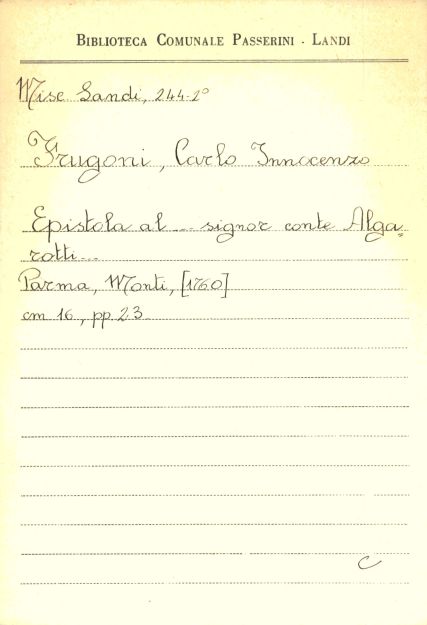 BIBLIOTECA COMUNALE PASSERINI - LANDI
Misc Landi, 244-2°
Frugoni, Carlo Innocenzo
Epistola al ... signor conte Alga=
rotti...
Parma, Monti, [1760]
cm 16, pp. 23
C